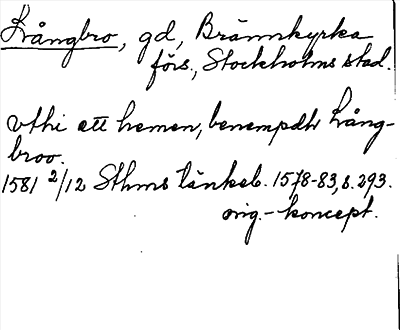 Långbro, gd, Brännkyrka
förs., Stockholms stad.
vthi ett hemen, benempdt Lång-
broo.
1581 2/12 Sthms tänkeb. 1578-83, s. 293.
orig.-koncept.